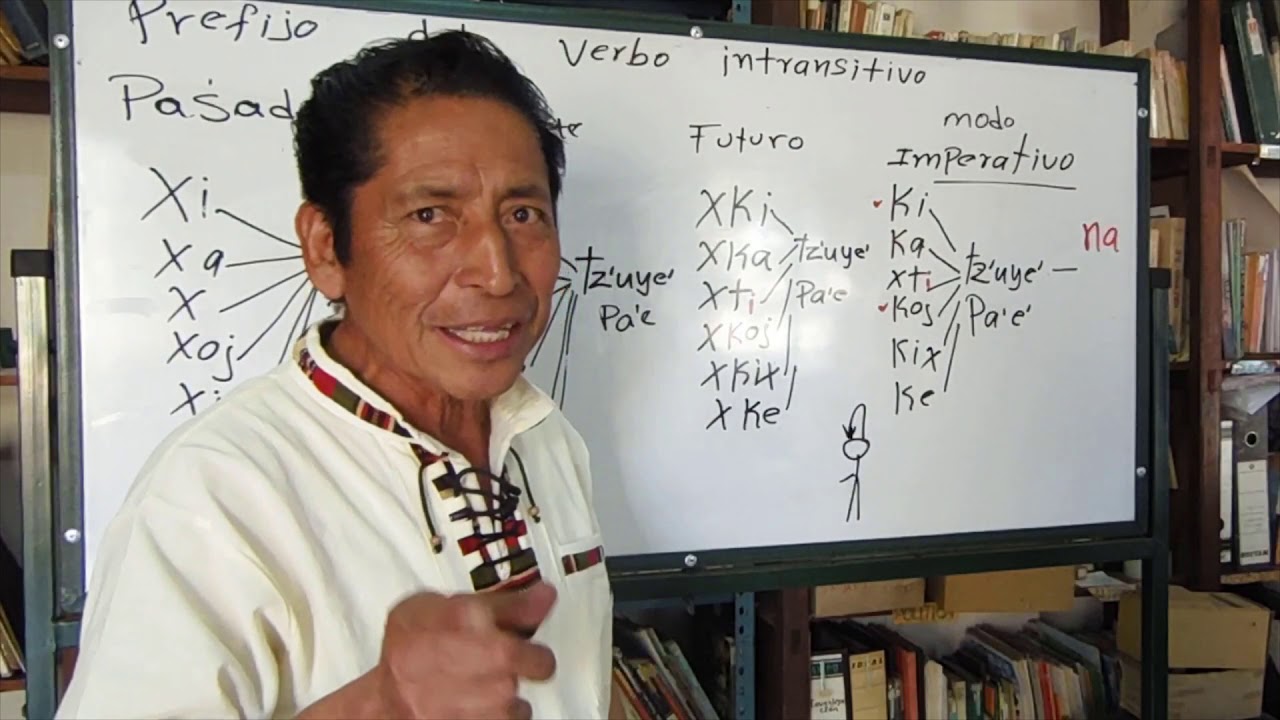 Prefijo del verbo intransitivo
Pasad
te
Futuro
modo
Imperativo
Xi
Xa
X
Xoj
Xi
tz'uye'
Pa'e
XKi
XKa
Xti
XKoj
XKix
XKe
tz'uye'
Pa'e
Ki
Ka
xti
Koj
Kix
Ke
tz'uye' — na
Pa'e'